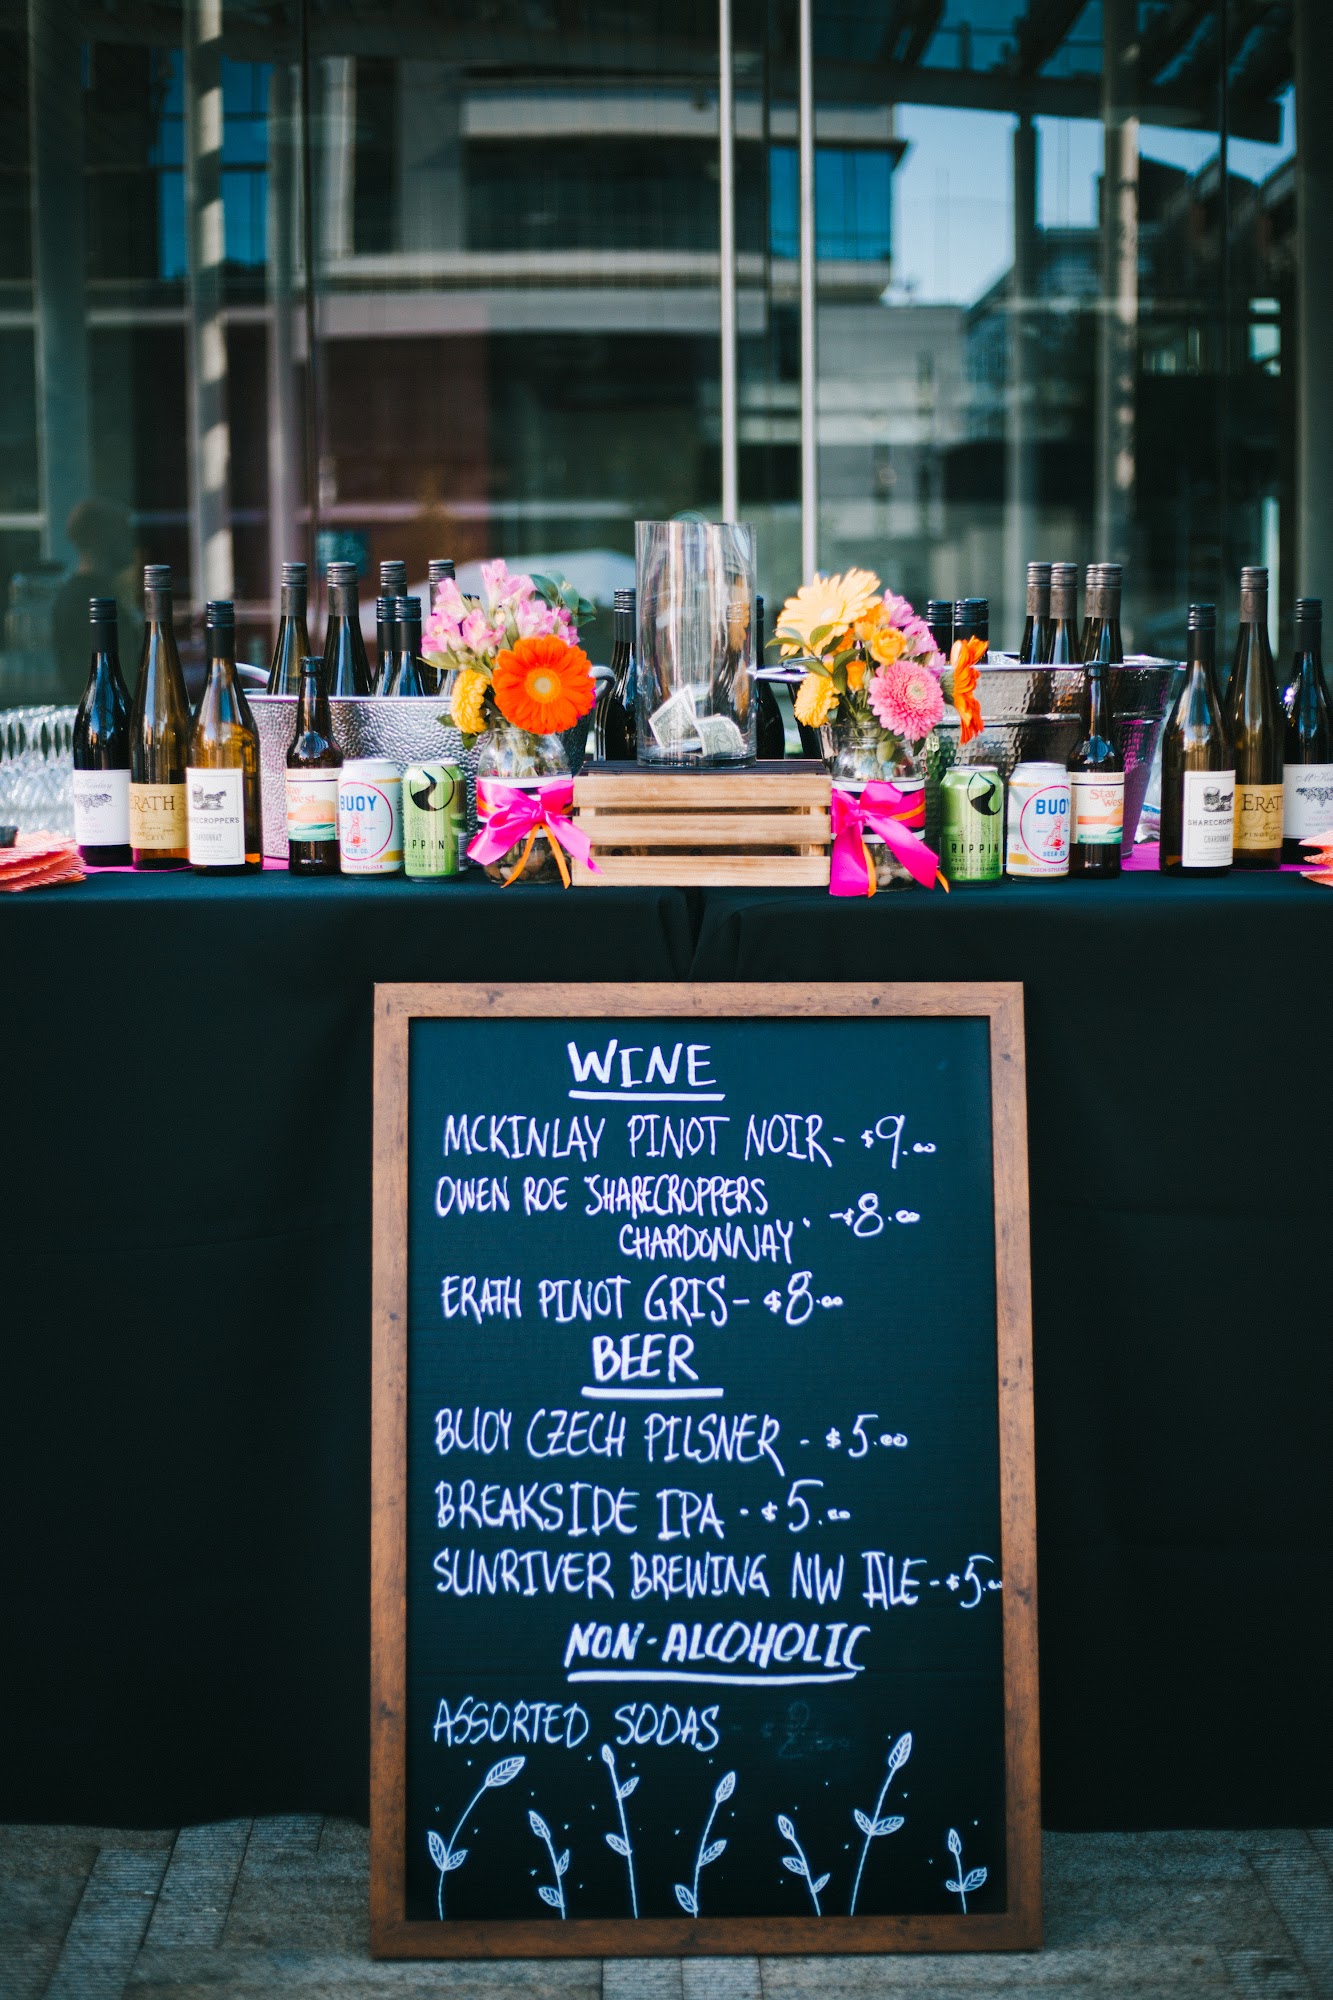 McKinlay
ERATH
SHARECROPPERS
CHARDONNAY
Stay
West
BUOY
BEER CO.
RIPPIN
RIPPIN
BUOY
BEER CO.
CZECH-STYLE PILS
Stay
West
SHARECROPPERS
CHARDONNAY
ERATH
PINOT
WINE
MCKINLAY PINOT NOIR - $9.00
OWEN ROE "SHARECROPPERS
CHARDONNAY" - $8.00
ERATH PINOT GRIS - $8.00
BEER
BUOY CZECH PILSNER - $5.00
BREAKSIDE IPA - $5.00
SUNRIVER BREWING NW ALE - $5.00
NON-ALCOHOLIC
ASSORTED SODAS